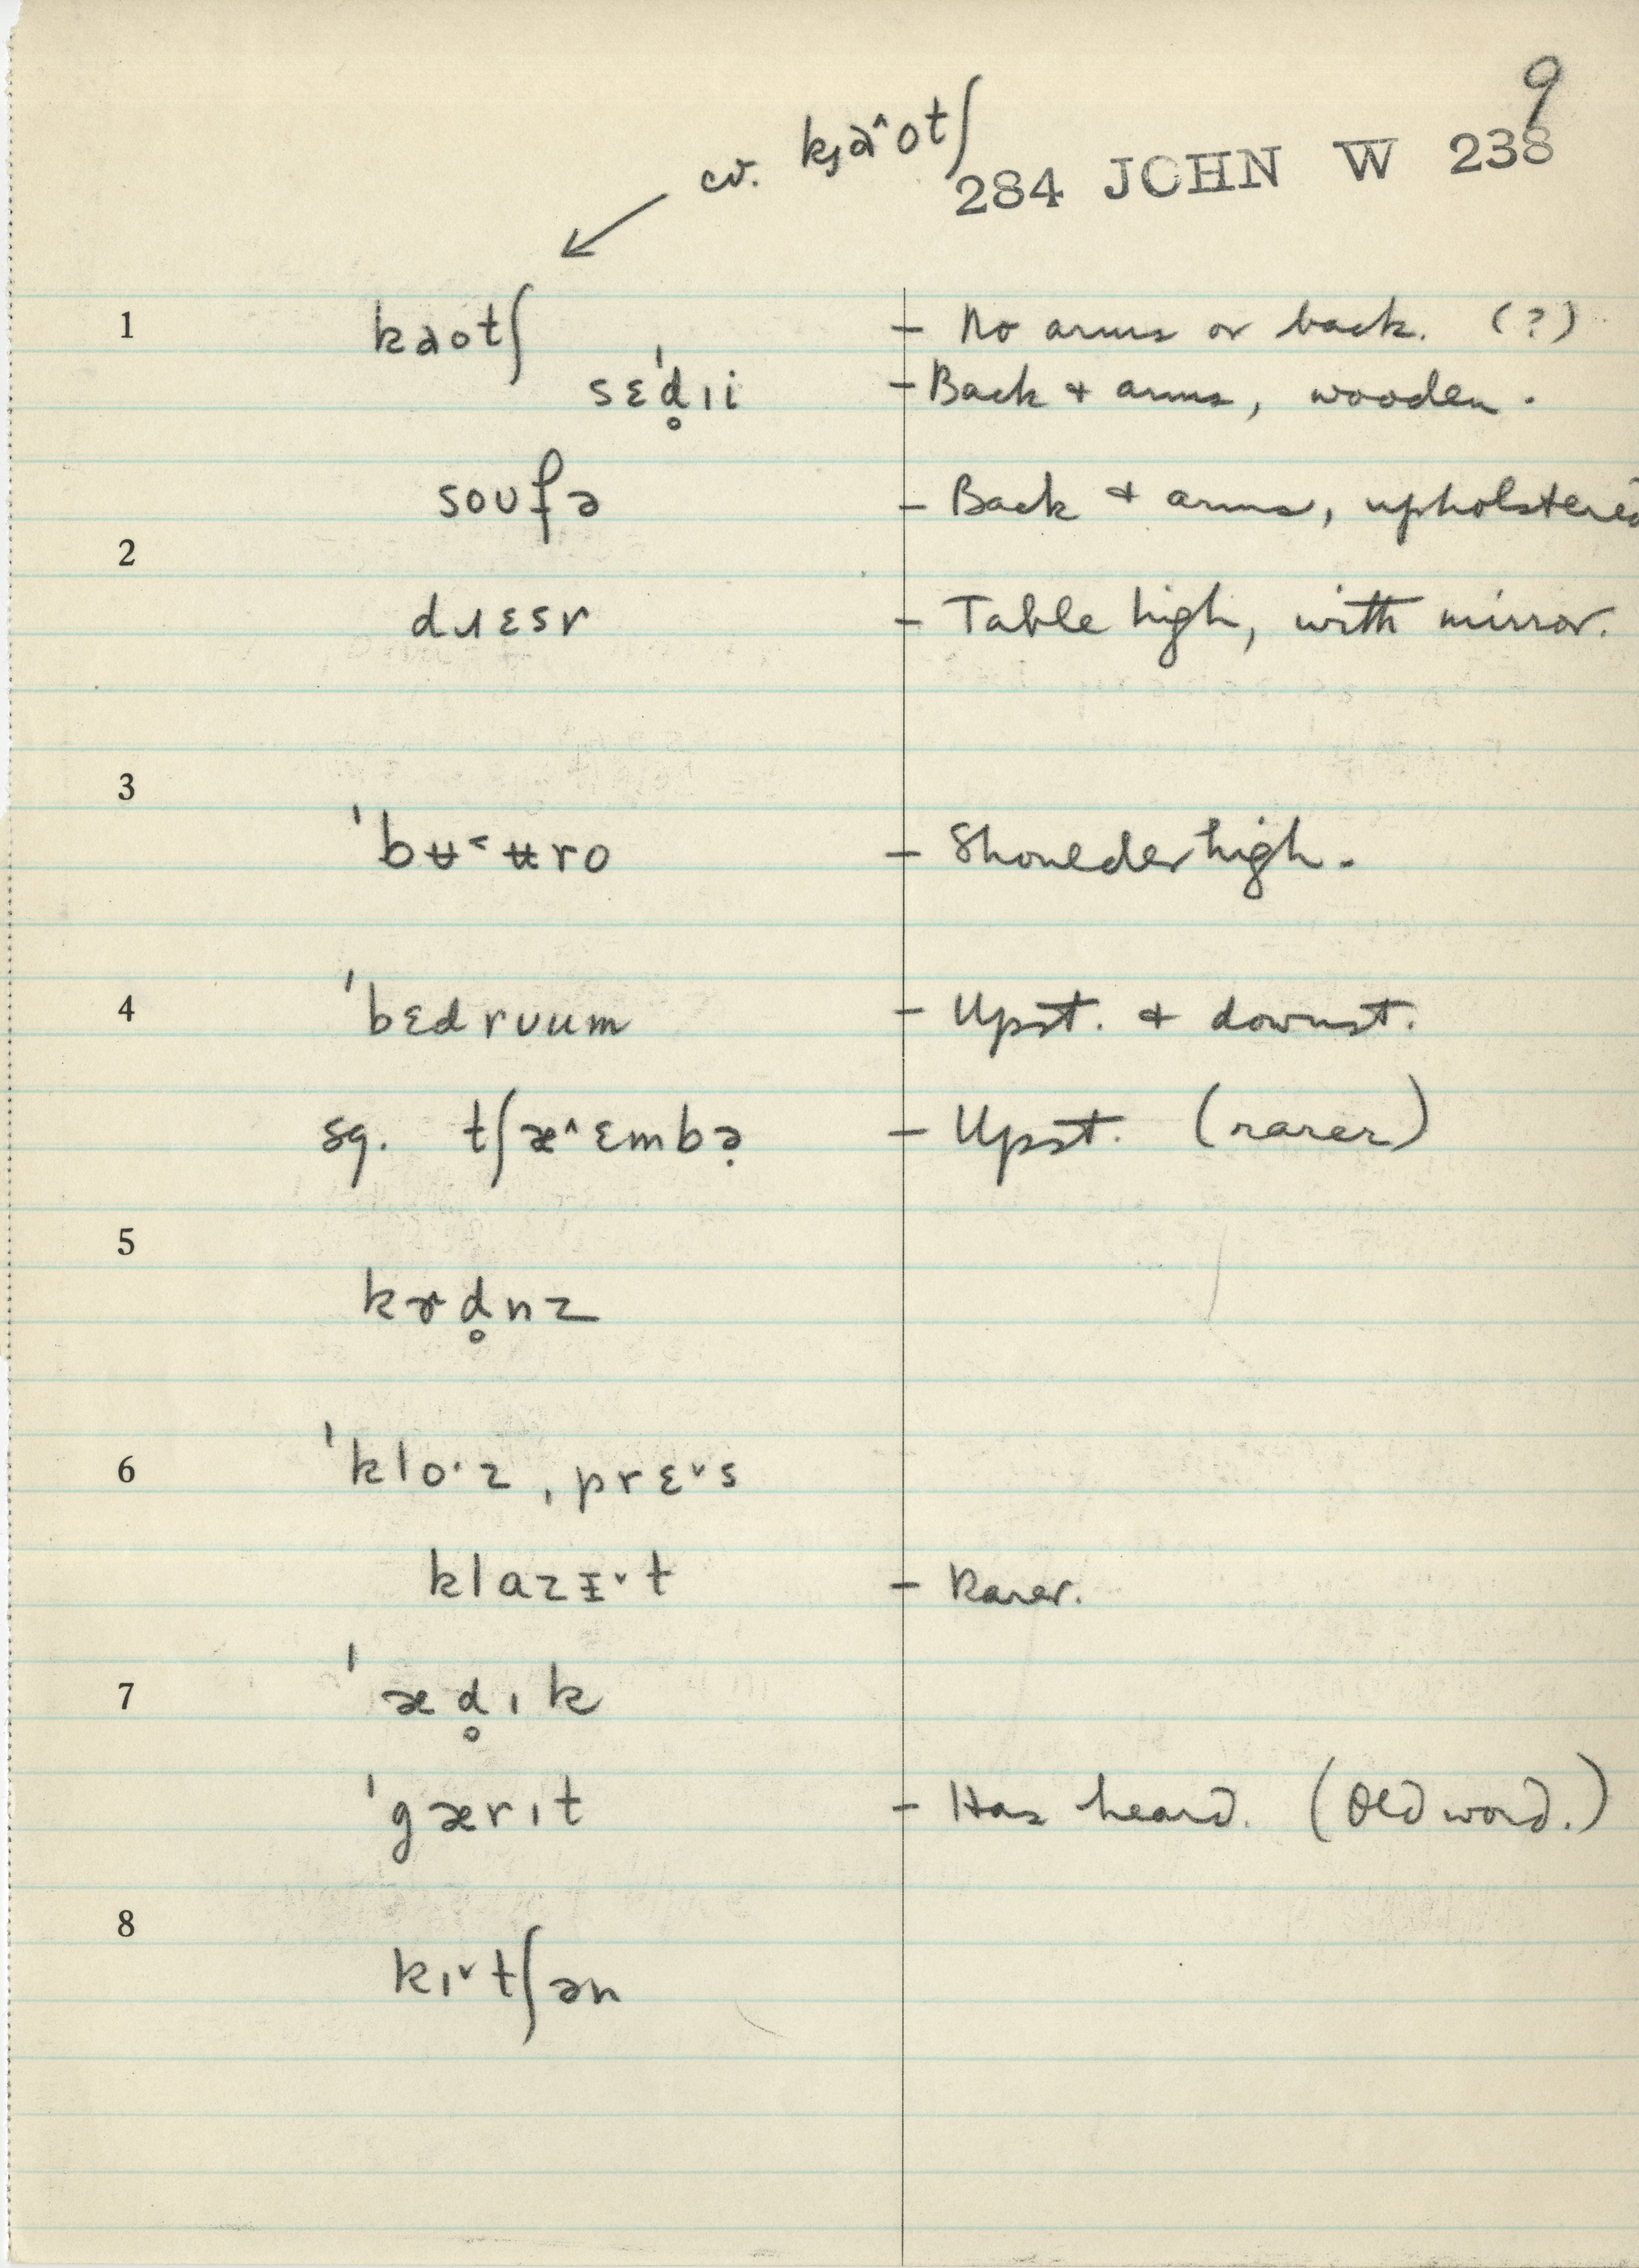 9
cv. kȷa˄otʃ
284 JOHN W 238
1 kaotʃ – No arms or back. (?)
sɛˈd̥ıi – Back + arms, wooden.
soʊfə – Back + arms, upholstered
2
dɹɛsr – Table high, with mirror.
3
ˈbʉ˂ʉro – Shoulder high.
4 ˈbɛdrʊum – Upst. + downst.
sg. tʃæ˄ɛmbə̣ – Upst. (rarer)
5
kɚd̥nz
6 ˈkloˑz ˌprɛ˅s
klazɪ˅t – Rarer.
7 ˈæd̥ık
ˈgærıt – Has heard. (Old word.)
8
kı˅tʃən